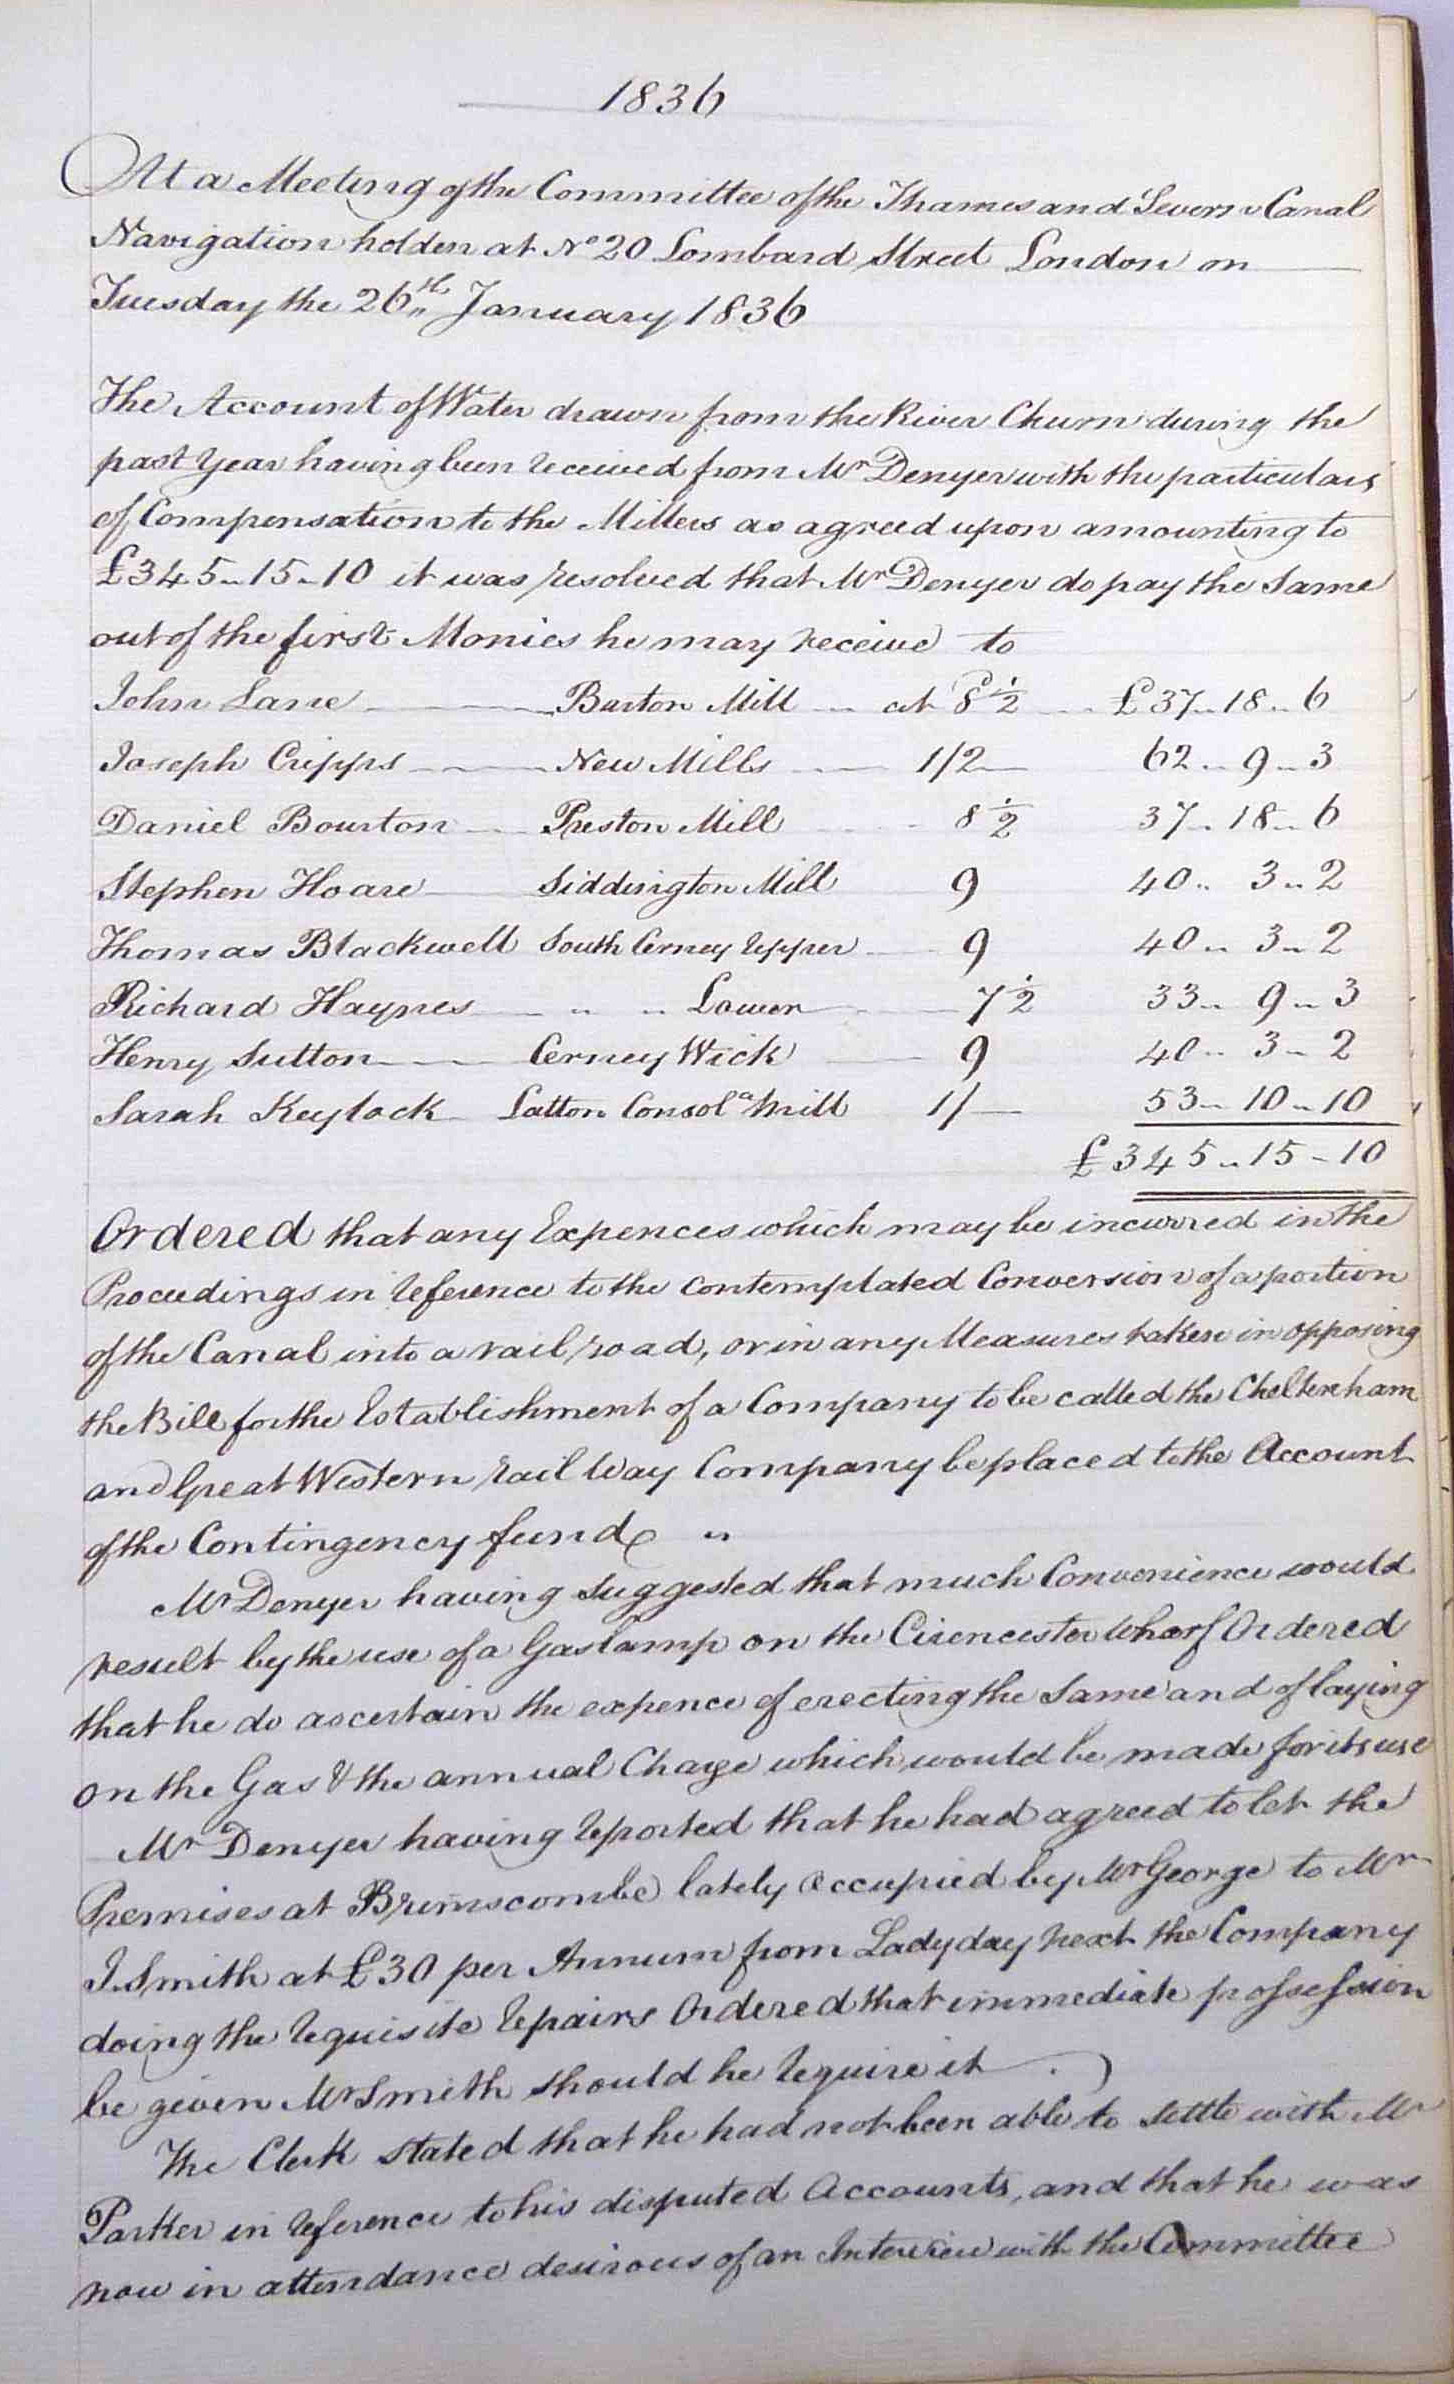 1836
At a Meeting of the Committee of the Thames and Severn Canal
Navigation holden at No 20 Lombard Street London on
Tuesday the 26th January 1836
The Account of Water drawn from the River Churn during the
past Year having been received from Mr Denyer with the particulars
of Compensation to the Millers as agreed upon amounting to
£345 " 15 " 10 it was resolved that Mr Denyer do pay the Same
out of the first Monies he may receive to
John Lane Barton Mill at 8 1/2 £37 " 18 " 6
Joseph Cripps New Mills 1/2 62 " 9 " 3
Daniel Bourton Preston Mill 8 1/2 37 " 18 " 6
Stephen Hoare Siddington Mill 9 40 " 3 " 2
Thomas Blackwell South Cerney Upper 9 40 " 3 " 2
Richard Haynes " " Lower 7 1/2 33 " 9 " 3
Henry Sutton Cerney Wick 9 40 " 3 " 2
Sarah Keylock Latton Consola Mill 1/- 53 " 10 " 10
£345 " 15 " 10
Ordered that any Expences which may be incurred in the
Proceedings in reference to the contemplated Conversion of a portion
of the Canal into a rail road, or in any Measures taken in opposing
the Bill for the Establishment of a Company to be called the Cheltenham
and Great Western rail Way Company be placed to the Account
of the Contingency fund "
Mr Denyer having suggested that much Convenience would
result by the use of a Gas lamp on the Cirencester Wharf Ordered
that he do ascertain the expence of erecting the Same and of laying
on the Gas & the annual Charge which would be made for its use
Mr Denyer having reported that he had agreed to let the
Premises at Brimscombe lately occupied by Mr George to Mr
J. Smith at £30 per Annum from Ladyday next the Company
doing the requisite repairs Ordered that immediate possession
be given Mr Smith should he require it
The Clerk stated that he had not been able to settle with Mr
Parker in reference to his disputed Accounts, and that he was
now in attendance desirous of an Interview with the Committee